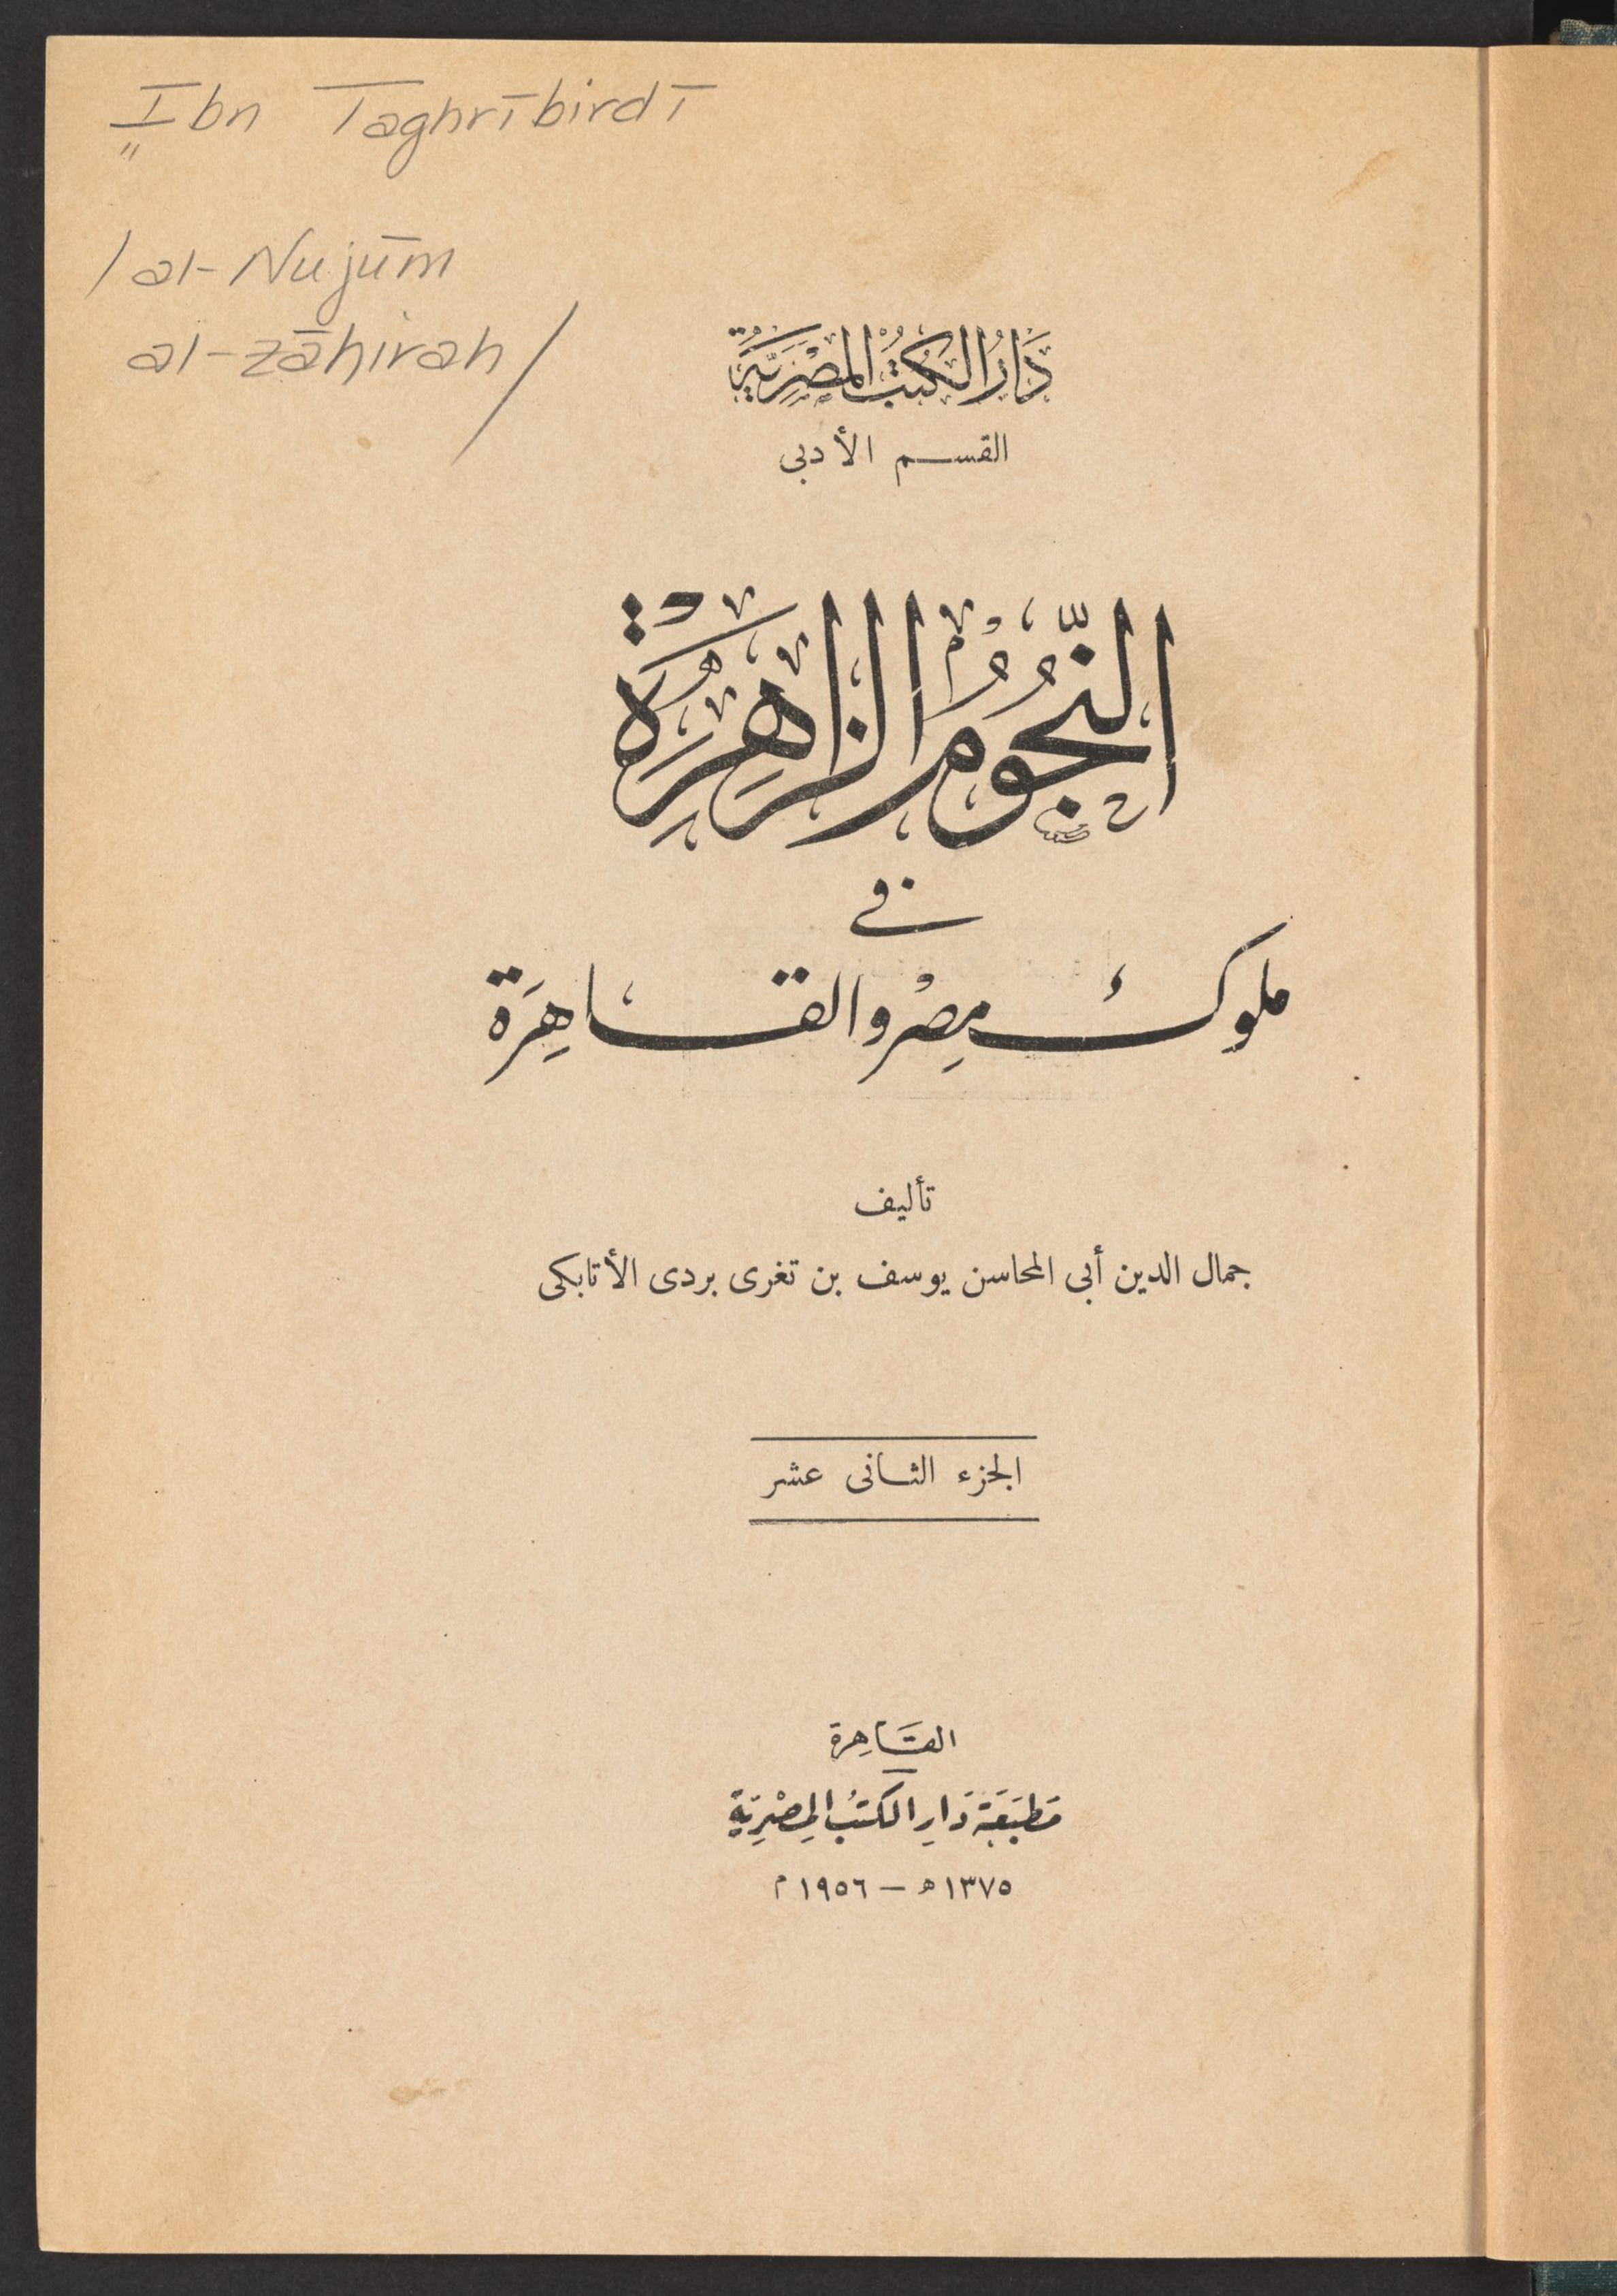 Ibn Taghrībirdī
/al-Nujūm
al-zāhirah/
دَارُ الكُتُبُ المِصْرِيَّة
القسم الأدبى
النُّجُومُ الزاهِرَة
فى
ملوك مِصْر والقاهِرَة
تأليف
جمال الدين أبى المحاسن يوسف بن تغرى بردى الأتابكى
الجزء الثانى عشر
القَاهِرة
مَطبَعَة دَارِ الكتبُ المِصْرِيَّة
١٣٧٥ﻫ — ١٩٥٦م